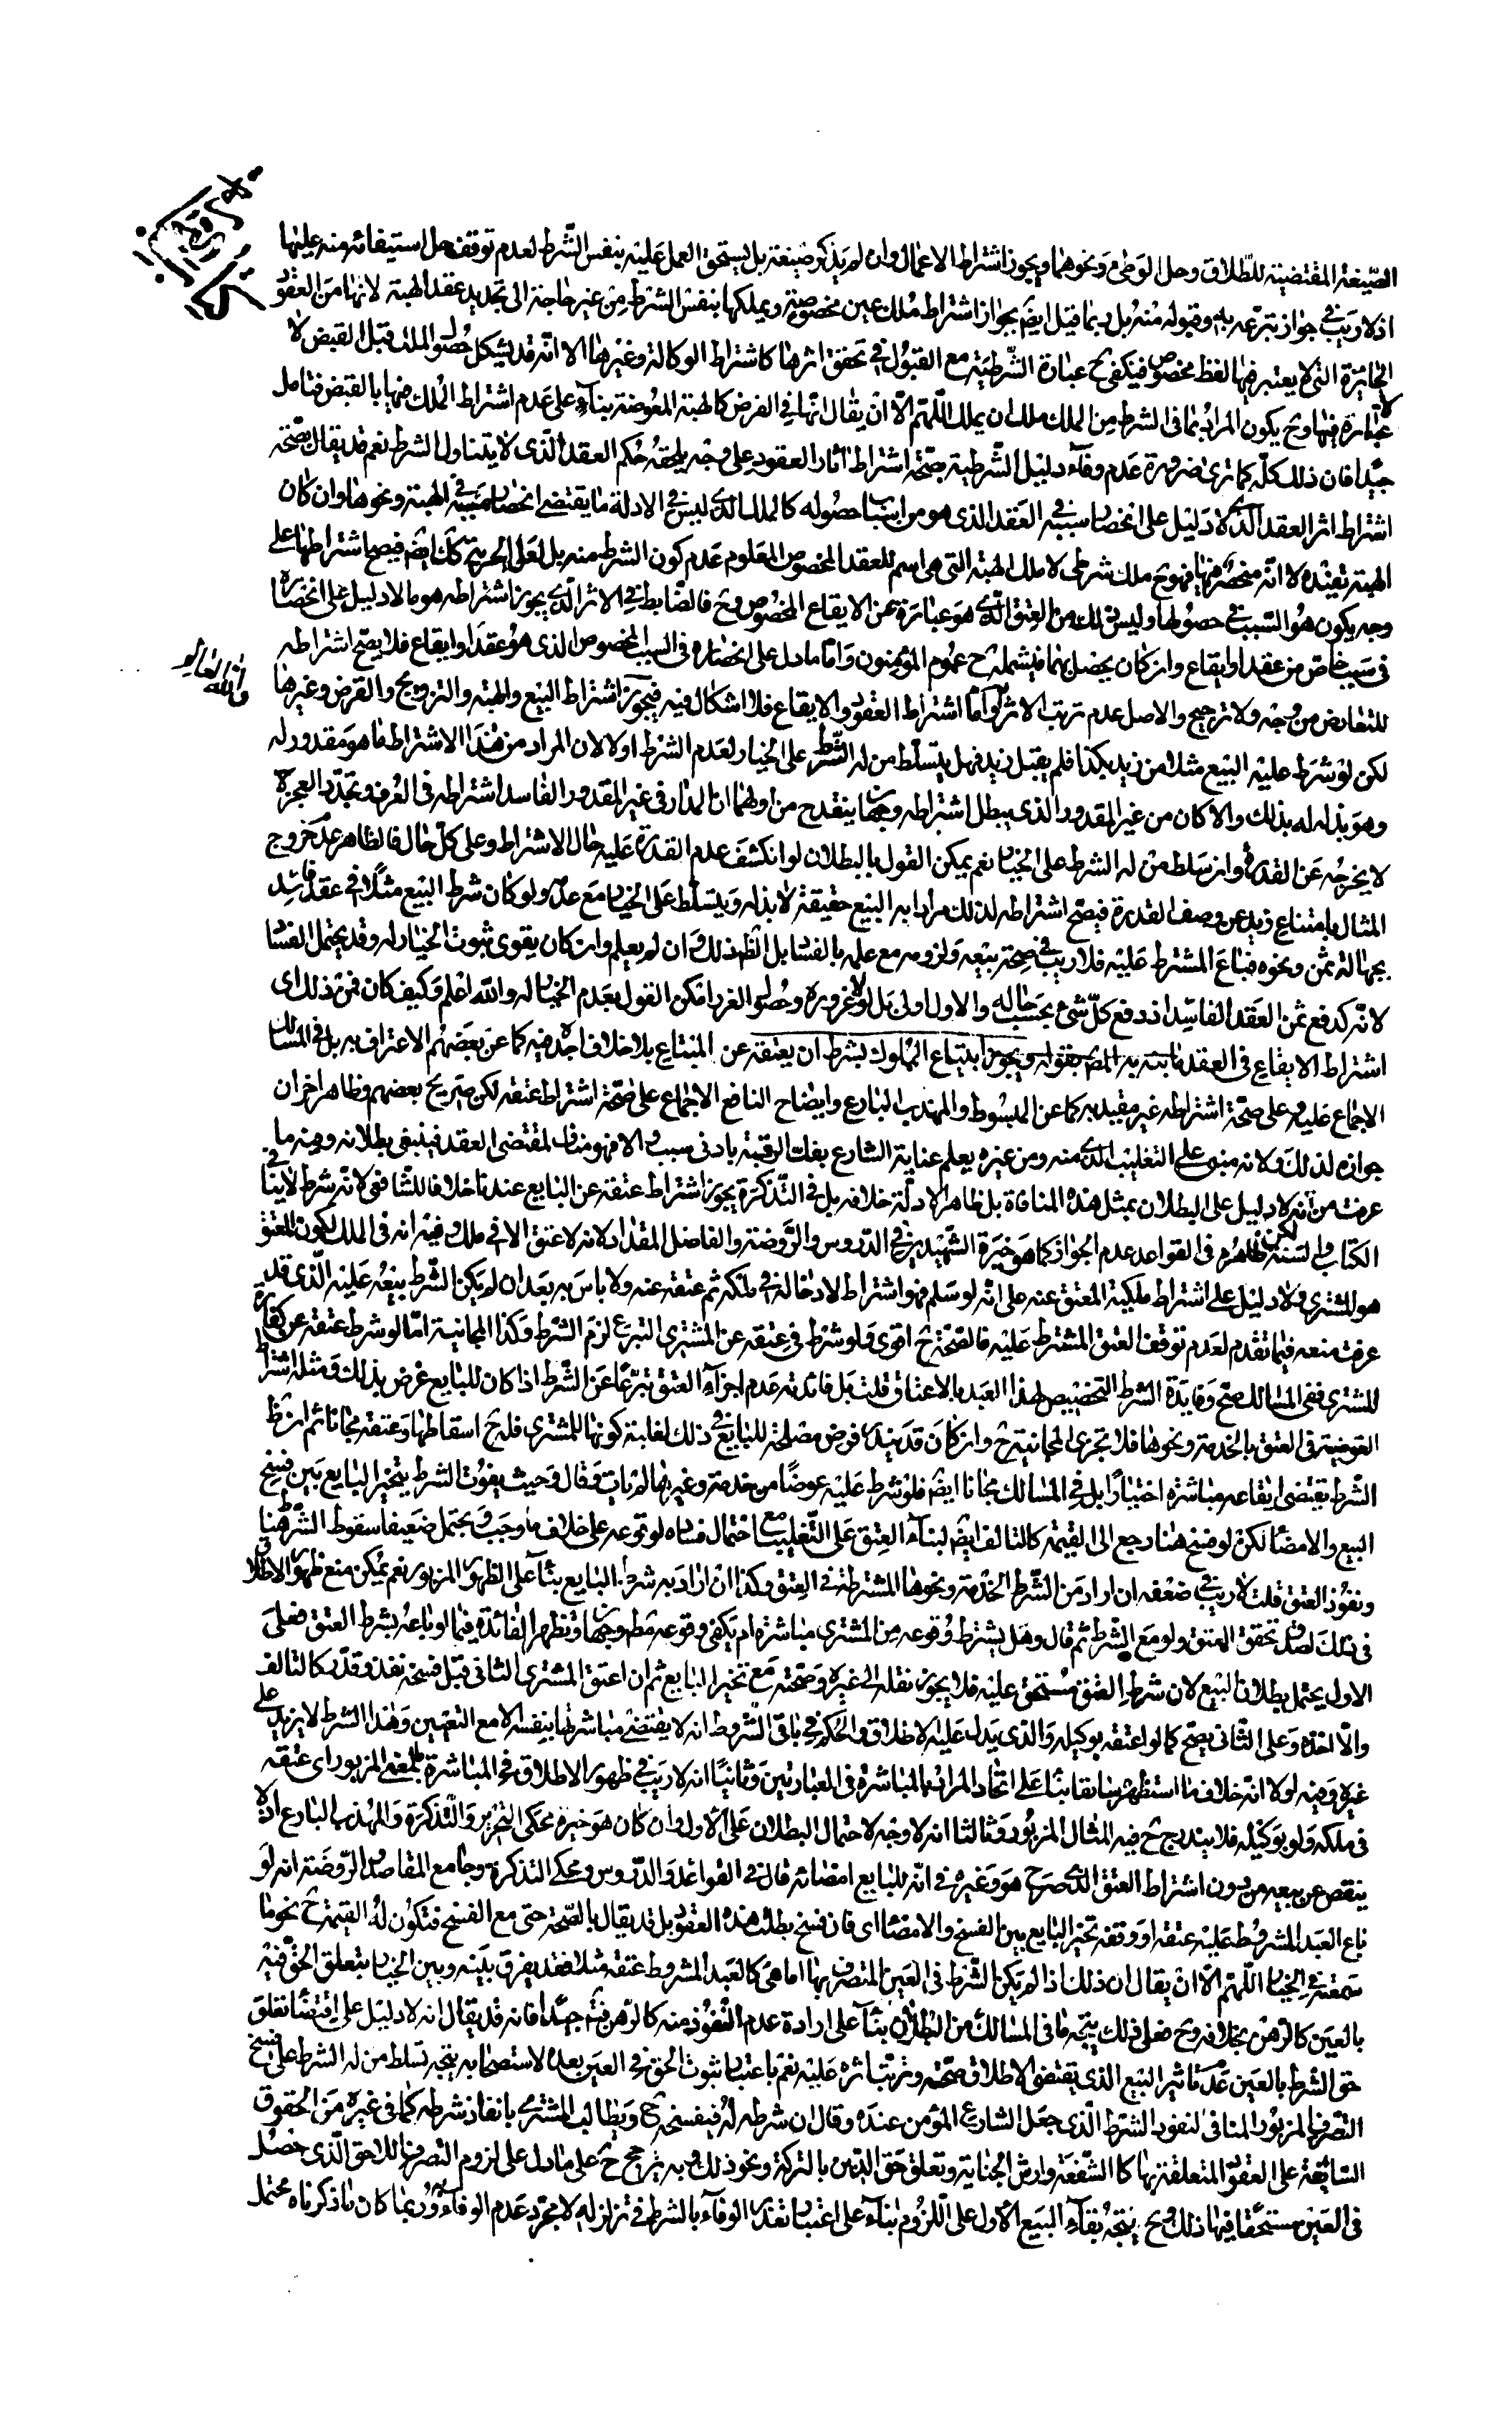 الصّيغة المقتضية للطّلاق وحل الوطى ونحوهما ويجوز اشتراط الاعمال وان لم يذكر صيغة بل يستحق العمل عليه بنفس الشّرط لعدم توقف حل استيفائه منه عليها
اذ لا ريب في جواز تبرّعه به وقبوله منه بل ربما قيل ايضً بجواز اشتراط ملك عين مخصوصة ويملكها بنفس الشرط من غير حاجة الى تجديد عقد الهبة لانها من العقود
الجايزة التى لا يعتبر فيها لفظ مخصوص فيكفى ح عبارة الشّرطية مع القبول في تحقق اثرها كاشتراط الوكالة وغيرها الا انّه قد يشكل حصول الملك قبل القبض لا
عتباره فيها وح يكون المراد بما فى الشرط من الملك ملك ان يملك اللّهمّ الّا ان يقال انّها في الفرض كالهبة المعوضة بناءً على عدم اشتراط الملك فيها بالقبض فتامل
جيّدا فان ذلك كلّه كما ترى ضرورة عدم وفاء دليل الشّرطية بصحّة اشتراط اثار العقود على وجه يلحقه حكم العقد الّذى لا يتناول الشرط نعم قد يقال بصحّة
اشتراط اثر العقد الّذى لا دليل على انحصار سببه في العقد الذى هو من اسباب حصوله كالملك الذى ليس في الادلة ما يقتضى انحصار سببه في الهبة ونحوها وان كان
الهبة تفيده لا انّه منحصر فيها فهو ح ملك شرطى لا ملك الهبة التى هى اسم للعقد المخصوص المعلوم عدم كون الشرط منه بل لعل الحرية كك ايضً فيصح اشتراطها على
وجه يكون هو السّبب في حصولها وليس ذلك من العتق الّذى هو عبارة عن الايقاع المخصوص وح فالضّابط في الاثر الّذى يجوز اشتراطه هو ما لا دليل على انحصاره
فى سبب خاصّ من عقد او ايقاع وان كان يحصل بهما فيشمله ح عموم المؤمنون وامّا ما دل على انحصاره فى السبب المخصوص الذى هو عقد او ايقاع فلا يصحّ اشتراطه
للتعارض من وجه ولا ترجيح والاصل عدم ترتب الاثر وامّا اشتراط العقود والايقاع فلا اشكال فيه فيجوز اشتراط البيع والهبة والتزويج والقرض وغيرها
والله العالم
لكن لو شرط عليه البيع مثلا من زيد بكذا فلم يقبل زيد فهل يتسلّط من له الشّرط على الخيار لعدم الشّرط او لا لان المراد من هذا الاشتراط ما هو مقدور له
وهو بذله له بذلك والا كان من غير المقدور الذى يبطل اشتراطه وجهان ينقدح من اولهما ان المدار في غير المقدور الفاسد اشتراطه فى العرف وتجدّد العجز لا
لا يخرجه عن القدرة وان سلط من له الشرط على الخيار نعم يمكن القول بالبطلان لو انكشف عدم القدرة عليه حال الاشتراط وعلى كلّ حال فالظاهر عدم خروج
المثال بامتناع زيد عن وصف القدرة فيصحّ اشتراطه لذلك مرادا به البيع حقيقة لا بذله ويتسلّط على الخيار مع عدمه ولو كان شرط البيع مثلًا في عقد فاسد
بجهالة ثمن ونحوه فباع المشترط عليه فلا ريب في صحّة بيعه ولزومه مع علمه بالفساد بل الظّ ذلك وان لم يعلم وان كان يقوى ثبوت الخيار له وقد يحتمل الفساد
لانّه كدفع ثمن العقد الفاسد اذ دفع كلّ شىء بحسب حاله والاول اولى بل لولا غروره وحصول الغرر امكن القول بعدم الخيار له والله اعلم وكيف كان فمن ذلك اى
اشتراط الايقاع في العقد ما نبّه به المصً بقوله ويجوز ابتياع المملوك بشرط ان يعتقه عن المبتاع بلا خلاف اجده فيه كما عن بعضهم الاعتراف به بل في المسالك
الاجماع عليه على صحّة اشتراطه غير مقيد به كما عن المبسوط والمهذب البارع وايضاح النافع الاجماع على صحّة اشتراط عتقه لكن صريح بعضهم وظاهر اخر ان
جوازه لذلك ولانه مبنى على التغليب الّذى منه ومن غيره يعلم عناية الشارع بفك الرقبة بادنى سبب والا فهو مناف لمقتضى العقد فينبغى بطلانه وفيه ما
عرفت من انه لا دليل على البطلان بمثل هذه المنافاة بل ظاهر الادلّة خلافه بل في التّذكرة يجوز اشتراط عتقه عن البايع عندنا خلافا للشّافعى لانّه شرط لا ينافى
الكتاب والسّنة لكن ظاهرهم فى القواعد عدم الجواز كما هو خيرة الشّهيدين في الدّروس والرّوضة والفاضل المقداد لانه لا عتق الا في ملك وفيه انه فى الملك لكون المعتق
هو المشترى ولا دليل على اشتراط ملكية المعتق عنه على انّه لو سلم فهو اشتراط لادخاله في ملكه ثم عتقه عنه ولا باس به بعد ان لم يكن الشّرط بيعه عليه الّذى قد
عرفت منعه فيما تقدم لعدم توقف العتق المشترط عليه فالصّحّة ح اقوى ولو شرط في عتقه عن المشترى التبرع لزم الشرط وكذا المجانية امّا لو شرط عتقه عن كفارة
للمشترى ففى المسالك صحّ وفايدة الشرط التخصيص لهذا العبد بالاعتاق قلت بل فائدته عدم اجزاء العتق تبرّعًا عن الشّرط اذا كان للبايع غرض بذلك ومثله اشتراط
العوضية في العتق بالخدمة ونحوها فلا تجزى المجانية ح وان كان قد يندر فرض مصلحة للبايع في ذلك لغلبة كونها للمشترى فله ح اسقاطها وعتقه مجانا ثم ان ظ
الشّرط يقتضى ايقاعه مباشرة اختيارًا بل في المسالك مجانا ايضً فلو شرط عليه عوضًا من خدمة وغيرها لم يات وقال وحيث يفوت الشرط يتخير البايع بين فسخ
البيع والامضاء لكن لو فسخ هنا رجع الى القيمة كالتالف ايضً لبناء العتق على التّغليب مع احتمال فساده لوقوعه على خلاف ما وجب ويحتمل ضعيفا سقوط الشّرط هنا
ونفوذ العتق قلت لا ريب في ضعفه ان اراد من الشّرط الخدمة ونحوها المشترطة في العتق وكذا ان اراد به شرط البايع بناًء على الظهور المزبور نعم يمكن منع ظهور الاطلاق
فى ذلك لصدق تحقق العتق ولو مع الشّرط ثم قال وهل يشترط وقوعه من المشترى مباشرة ام يكفى وقوعه مطً وجهان وتظهر الفائدة فيما لو باعه بشرط العتق فعلى
الاول يحتمل بطلان البيع لان شرط العتق مستحق عليه فلا يجوز نقله الى غيره وصحّته مع تخير البايع ثم ان اعتق المشترى الثانى قبل فسخه نفذ وقدّر كالتالف
والّا اخذه وعلى الثّانى يصحّ كما لو اعتقه بوكيله والذى يدل عليه الاطلاق والحكم في باقى الشّروط انه لا يقتضى مباشرتها بنفسه الا مع التعيين وهذا الشرط لا يزيد على
غيره وفيه اولا انّه خلاف ما استظهره سابقا بناءً على اتحاد المراد بالمباشرة فى العبارتين وثانيًا انه لا ريب في ظهور الاطلاق في المباشرة بالمعنى المزبور اى عتقه
فى ملكه ولو بوكيله فلا يندرج ح فيه المثال المزبور وثالثا انه لا وجه لاحتمال البطلان على الاول وان كان هو خيرة محكى التحرير والتّذكرة والمهذب البارع اذ لا
ينقص عن بيعه من دون اشتراط العتق الّذى صرح هو وغيره في انّه للبايع امضائه قال في القواعد والدّروس ومحكى التذكرة وجامع المقاصد والرّوضة انه لو
باع العبد المشروط عليه عتقه او وقفه تخير البايع بين الفسخ والامضاء اى فان فسخ بطلت هذه العقود بل قد يقال بالصّحّة حتى مع الفسخ فتكون له القيمة ح نحو ما
سمعته في الخيار اللّهمّ الّا ان يقال ان ذلك اذا لم يكن الشّرط فى العين المتصرف بها اما هى كالعبد المشروط عتقه مثلا فقد يفرق بينه وبين الخيار بتعلق الحق فيه
بالعين كالرهن بخلافه وح فعلى ذلك يتجه ما فى المسالك من البطلان بناًء على ارادة عدم النّفوذ منه كالرّهن فتامّل جيّدا فانه قد يقال انه لا دليل على اقتضاء تعلق
حق الشرط بالعين عدم تاثير البيع الذى يقتضى الاطلاق صحّته وترتب اثره عليه نعم باعتبار ثبوت الحق في العين بعده لاستصحابه يتجه تسلط من له الشرط على فسخ
التّصرف المزبور المنافى لنفوذ الشرط الّذى جعل الشارع المؤمن عنده وقال ان شرطه له فيفسخه ح ويطالب المشترى بانفاذ شرطه كما فى غيره من الحقوق
السّابقة على العقود المتعلقة بها كالشّفعة وارش الجناية وتعلق حق الدّين بالتركة ونحو ذلك وبه يرجح ح على ما دل على لزوم التّصرف اللاحق الّذى حصل
فى العين مستحقا فيها ذلك وح يتجه بقاء البيع الاول على اللّزوم بناًء على اعتبار تعذر الوفاء بالشرط في تزلزله لا مجرد عدم الوفاء به وربما كان ما ذكرناه محتمل